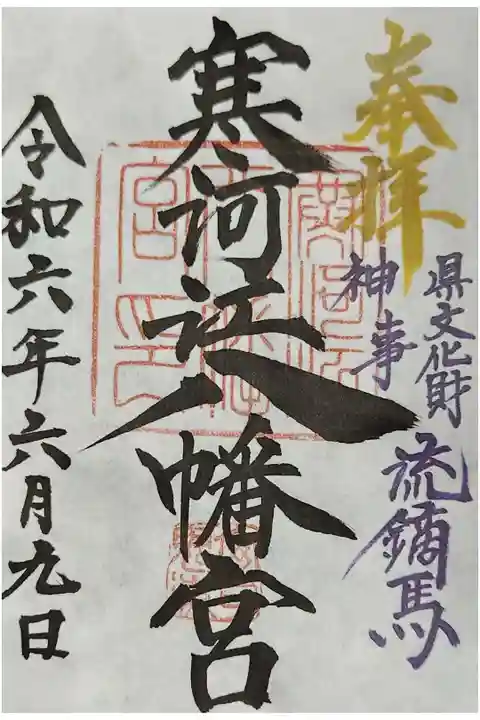 奉拝
県文化財
神事
流鏑馬
寒河江八幡宮
令和六年六月九日